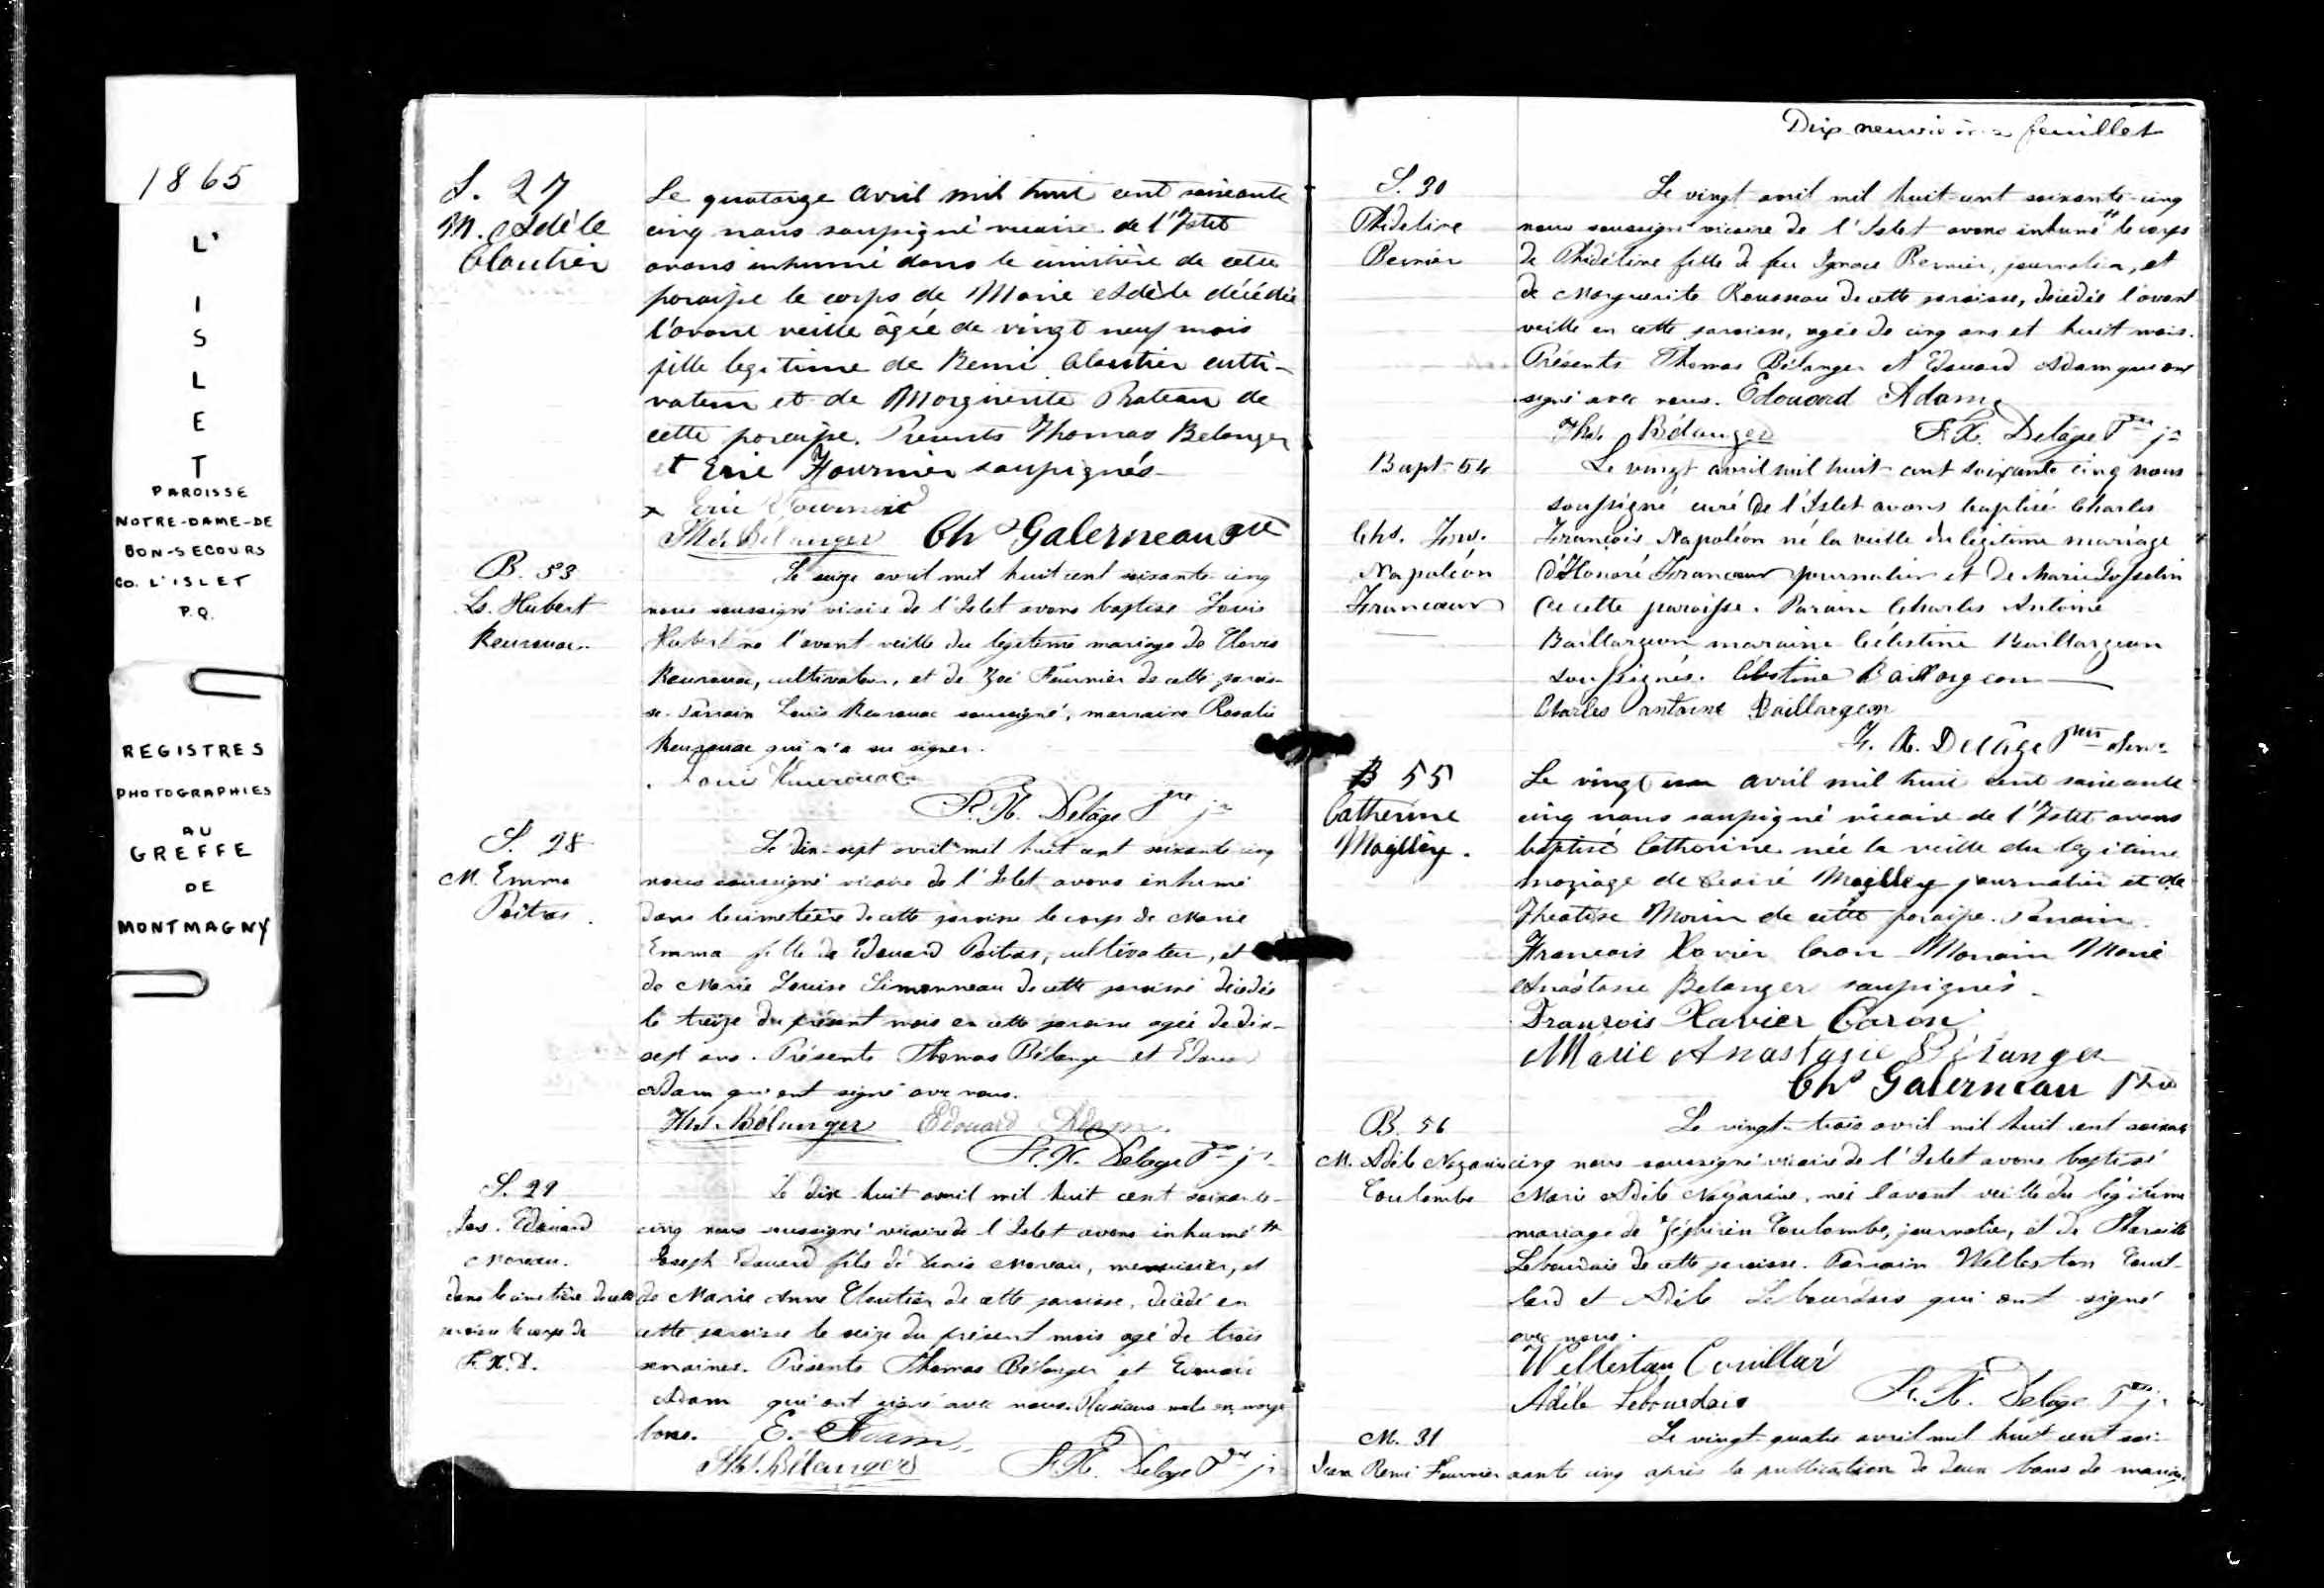 1865
L'
I
S
L
E
T
PAROISSE
NOTRE-DAME-DE
BON-SECOURS
CO. L'ISLET
P.Q.
REGISTRES
PHOTOGRAPHIES
AU
GREFFE
DE
MONTMAGNY
S. 27
M. Adèle
Cloutier
Le quatorze avril mil huit cent soixante
cinq nous soussigné vicaire de l'Islet
avons inhumé dans le cimetière de cette
paroisse le corps de Marie Adèle décédée
l'avant veille âgée de vingt neuf mois
fille legitime de Remi Cloutier culti-
vateur et de Marguerite de
cette paroisse. Presents Thomas Belanger
et Eric Fournier soussignés
x Eric Fournier
Ths. Bélanger Chs Galerneau Ptre
B. 53
Ls. Hubert
Keurouac.
Le seize avril mil huit cent soixante-cinq
nous soussigné vicaire de l'Islet avons baptisé Louis
Hubert né l'avant veille du légitime mariage de Clovis
Keurouac, cultivateur, et de Zoé Fournier de cette parois-
se. Parrain Louis Keurouac soussigné, marraine Rosalie
Keurouac qui n'a su signer.
Louis Keurouac
F. X. Delâge Ptre jr
S. 28
M. Emma
Poitras.
Le dix-sept avril mil huit cent soixante cinq
nous soussigné vicaire de l'Islet avons inhumé
dans le cimetière de cette paroisse le corps de Marie
Emma fille de Edouard Poitras, cultivateur, et
de Marie Louise Simonneau de cette paroisse décédée
le treize du présent mois en cette paroisse agée de dix-
sept ans. Présents Thomas Bélanger et Edouard
Adam qui ont signé avec nous.
Ths. Bélanger Edouard Adam.
F. X. Delage Ptre jr
S. 29
Jos. Edouard
Moreau.
dans le cimetière de cette
paroisse le corps de
F.X.D.
Le dix-huit avril mil huit cent soixante-
cinq nous soussigné vicaire de l'Islet avons inhumé
Joseph Edouard fils de Moreau, menuisier, et
de Marie Anne Cloutier de cette paroisse, décédé en
cette paroisse le seize du présent mois agé de trois
semaines. Présents Thomas Bélanger et Edouard
Adam qui ont signé avec nous. Plusieurs mots en marge
bons. E. Adam.
Ths. Bélanger F.X. Delage Ptre jr
Dix neuvième feuillet
S. 30
Phideline
Bernier
Le vingt avril mil huit-cent soixante-cinq
nous soussigné vicaire de l'Islet avons inhumé le corps
de Phidéline fille de feu Ignace Bernier, journalier, et
de Marguerite Rousseau de cette paroisse, décédée l'avant
veille en cette paroisse, agée de cinq ans et huit mois.
Présents Thomas Bélanger et Edouard Adam qui ont
signé avec nous. Edouard Adam
Ths. Bélanger F. X. Delâge Ptre jr
Bapt. 54
Chs. Frs.
Napoléon
Francoeur
Le vingt avril mil huit-cent soixante cinq nous
soussigné curé de l'Islet avons baptisé Charles
François Napoléon né la veille du légitime mariage
d'Honoré Francoeur journalier et de Marie Gosselin
de cette paroisse. Parain Charles Antoine
Baillargeon maraine Célestine Baillargeon
soussignés. Célestine Baillargeon
Charles Antoine Baillargeon
F. X. Delâge Ptre
B 55
Catherine
Maylley.
Le vingt un avril mil huit cent soixante
cinq nous soussigné vicaire de l'Islet avons
baptisé Catherine née la veille du legitime
mariage de Desiré Maylley journalier et de
Morin de cette paroisse. Parrain
Francois Xavier Caron Marraine Marie
Anastasie Belanger soussignés.
François Xavier Caron
Marie Anastasie Bélanger
Chs Galerneau Ptre
B. 56
M. Adèle Nazarine
Coulombe
Le vingt-trois avril mil huit cent soixante
cinq nous soussigné vicaire de l'Islet avons baptisé
Marie Adèle Nazarine, née l'avant veille du légitime
mariage de Zéphirin Coulombe, journalier, et de
Lebourdais de cette paroisse. Parrain Welleston Couil-
lard et Adèle Lebourdais qui ont signé
avec nous.
Wellestan Couillard
Adèle Lebourdais F. X. Delâge Ptre jr
M. 31
Jean Remi Fournier
Le vingt-quatre avril mil huit cent soi-
xante cinq après la publication de deux bans de mariage